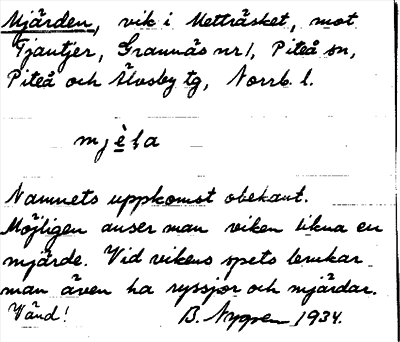 Mjärden, vik i Metträsket, mot
Tjautjer, Grannäs nr 1, Piteå sn,
Piteå och Älvsby tg, Norrb. l.
mjèḷa
Namnets uppkomst obekant.
Möjligen anser man viken likna en
mjärde. Vid vikens spets brukar
man även ha ryssjor och mjärdar.
Vänd! B. Nygren 1934.